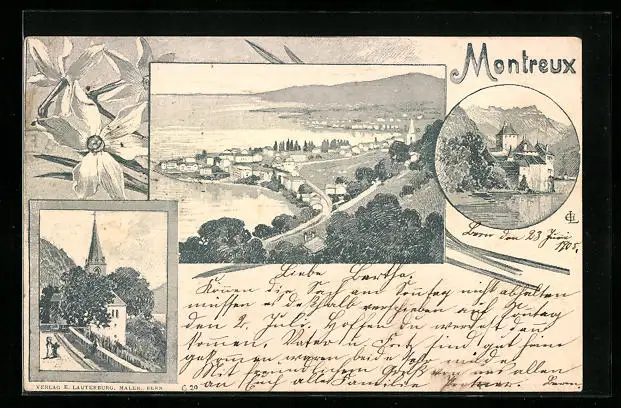 Montreux
Bern den 23 Juni
1905.
Liebe Bertha.
Können die Sach am Sontag nicht abhalten
müssen es deshalb verschieben auf Sontag
den 2. Juli. Hoffen du werdest dann
komen. Vater u. Fritz sind gut heim
gekomen waren beide sehr müde.
Mit freundlichem Gruß von uns allen
an Euch alle Familie
Bern
VERLAG E. LAUTERBURG, MALER, BERN
C 20